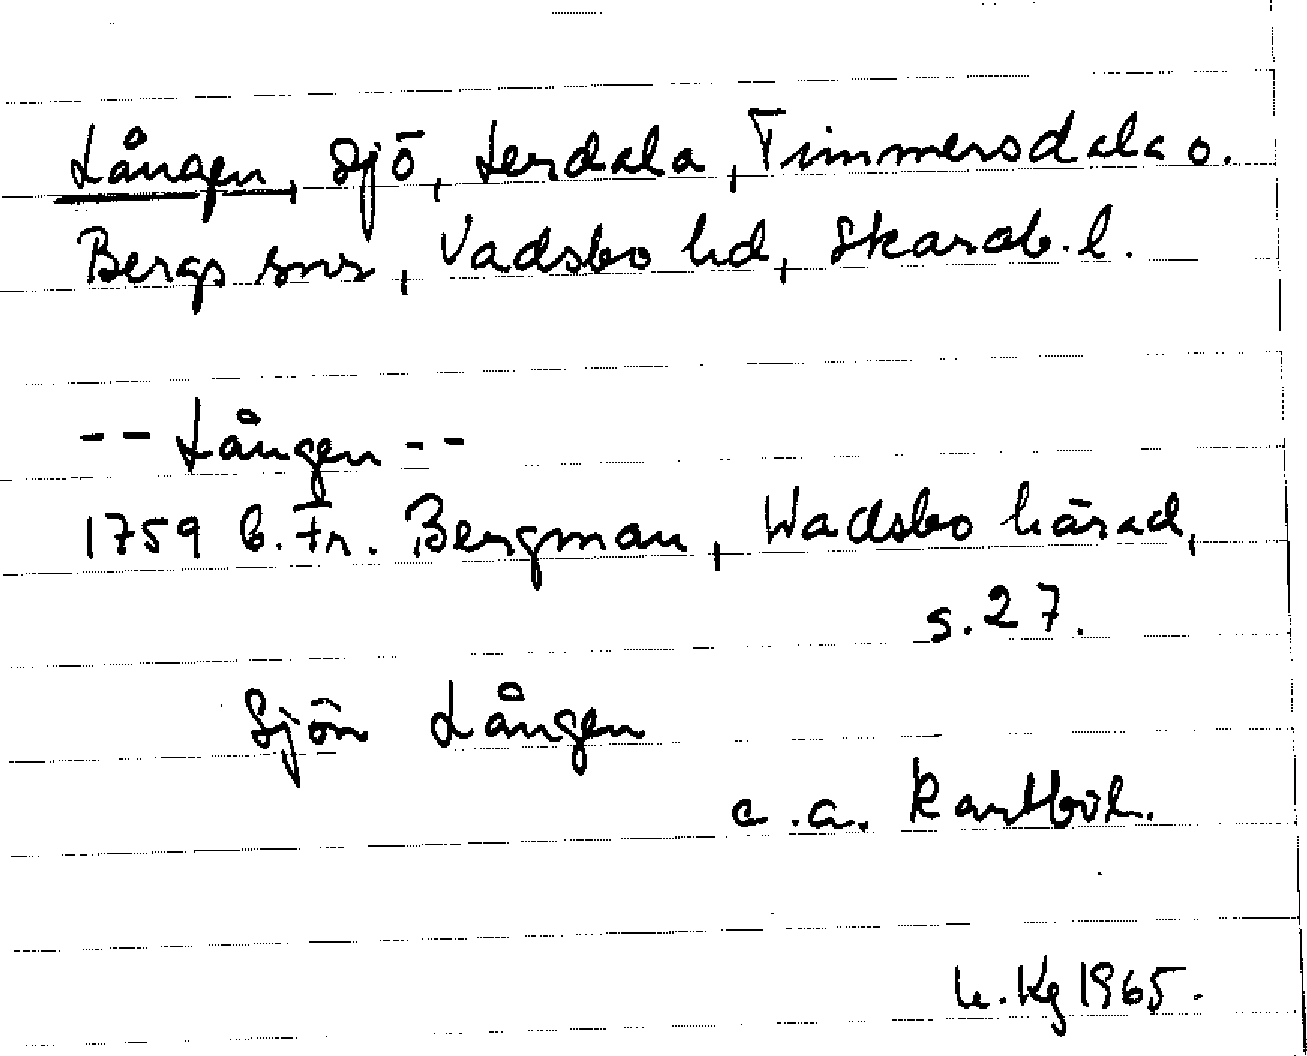 Lången, sjö, Lerdala, Timmersdala o.
Bergs snr, Vadsbo hd, Skarab. l.
-- Lången --
1759 B. Fr. Bergman, Wadsbo härad,
s. 27.
Sjön Lången
a. a. Kartbil.
Kg 1965.